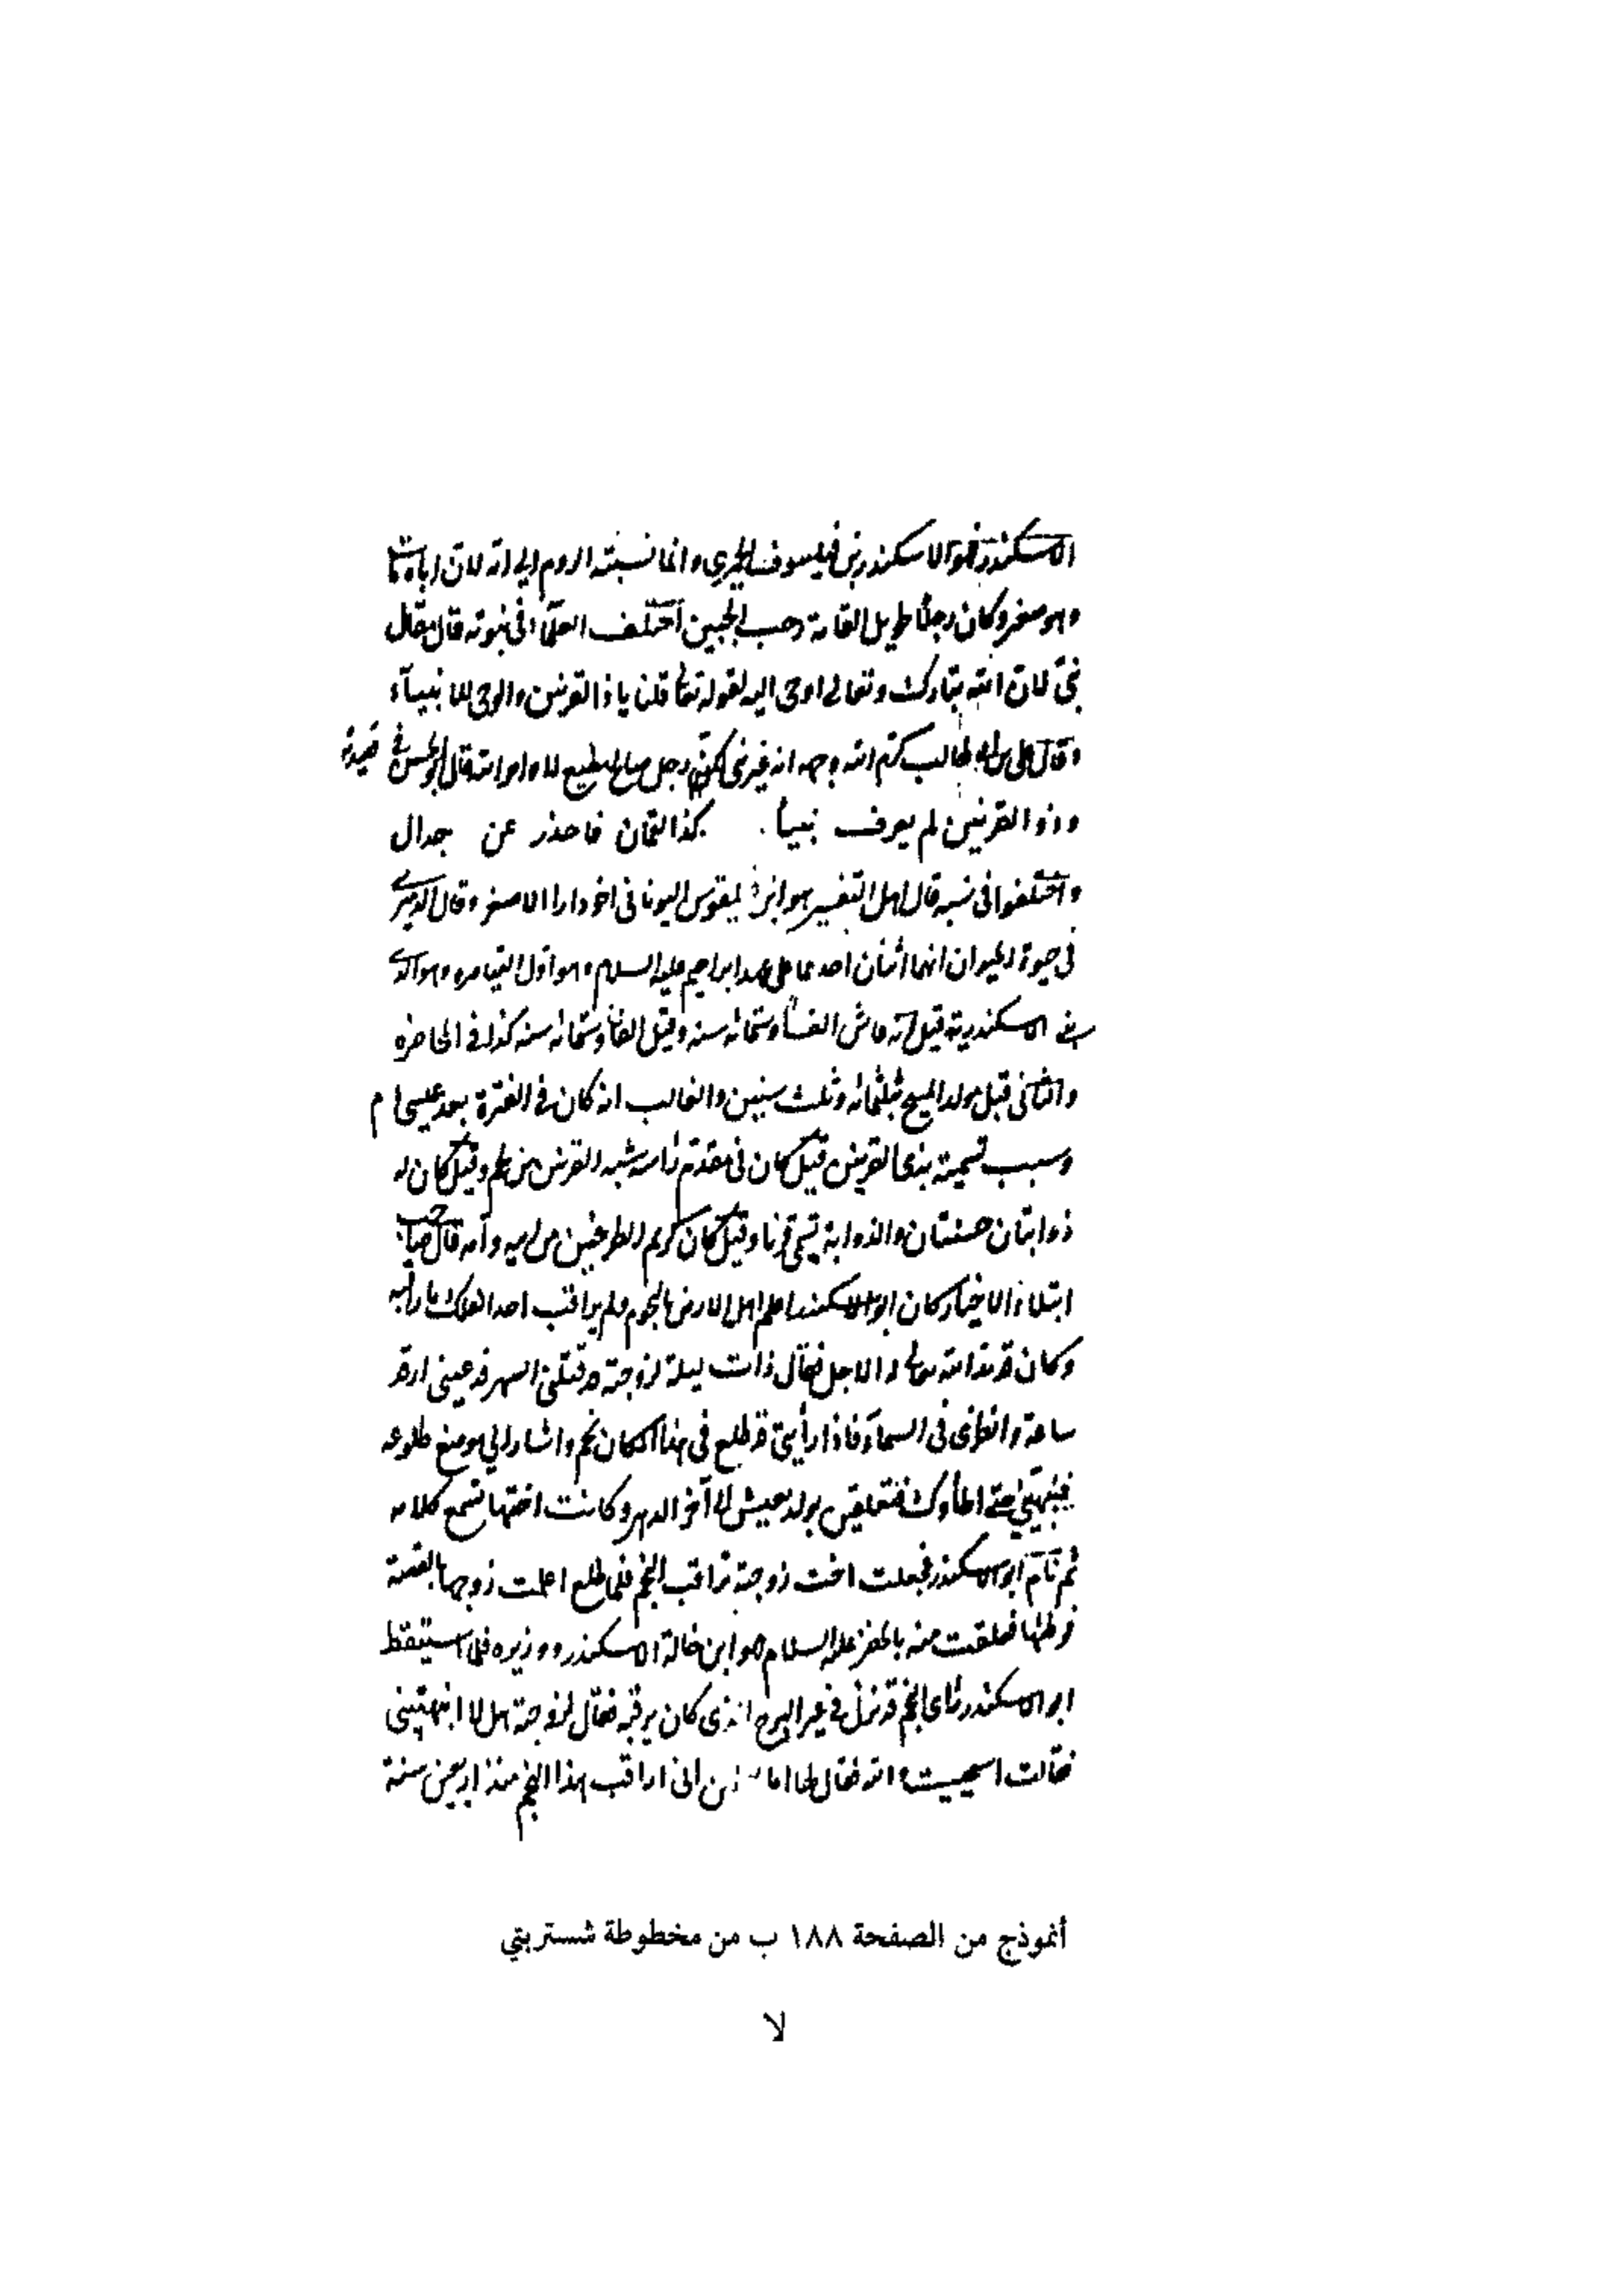 الاسكندر فهو الاسكندر بن فيلسوف الحميرى وانما نسبته الروم الى امه لان اباه مات
وهو صغير وكان رجلا طويل القامة رحب الجبين اختلف العلمآء فى نبوته قال مقاتل
نبى لان الله تبارك وتعالى اوحى اليه لقوله تعالى قلنا يا ذا القرنين والوحى للانبيآء
وقال على بن ابى طالب كرم الله وجهه انه غير نبى لكنه رجل صالح مطيع لاوامر الله قال فى قصيدته
وذو القرنين لم يعرف نبيا كذا لقمان فاحذر عن جدال
واختلفوا فى نسبه قال اهل التفسير هو ابن اليونانى اخو دارا الاصغر وقال الدميرى
فى حيوة الحيوان انهما اثنان احدهما على عهد ابراهيم عليه السلام وهو اول القياصره وهو الذى
بنى الاسكندرية قيل انه عاش الفا وستمائه سنه وقيل الفا وستمائه سنه كذا فى
والثانى قبل مولد المسيح بثلثمائه وثلث سنين والغالب انه كان فى الفترة بعد عيسى ع م
وسبب تسميته بذى القرنين قيل كان فى مقدم راسه شبه القرنين من لحم وقيل كان له
ذوابتان حسنتان والذوابة تسمى قرنا وقيل كان كريم الطرفين من ابيه وامه قال صاحب
ابتلاء الاخيار كان ابو الاسكندر اعلم اهل الارض بالنجوم ولم يراقب احد الفلك ما راقبه
وكان قد مد الله تعالى له الاجل فقال ذات ليلة لزوجته قد قتلنى السهر فدعينى ارقد
ساعة وانظرى فى السمآء فاذا رأيتى قد طلع فى هذا المكان نجم واشار الى موضع طلوعه
فنبهينى حتى اطأوك فتعلقين بولد يعيش الى آخر الدهر وكانت اختها تسمع كلامه
ثم نام ابو الاسكندر فجعلت اخت زوجته تراقب النجم فلما طلع اعلمت زوجها بالقصة
فوطئها فعلقت منه بالخضر عليه السلام هو ابن خالة الاسكندر ووزيره فلما استيقظ
ابو الاسكندر رأى النجم قد نزل فى غير البرج الذى كان يرقبه فقال لزوجته هلا انبهتينى
فقالت استحييت والله فقال لها اما انى اراقب هذا النجم منذ اربعين سنة
أنموذج من الصفحة ١٨٨ ب من مخطوطة شستربتي
لا